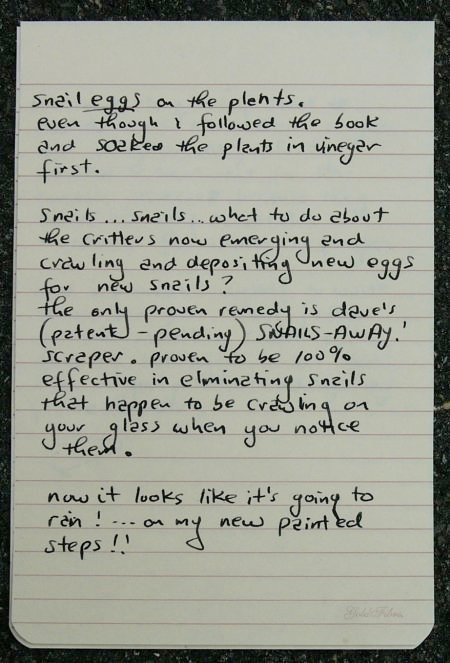 snail eggs on the plants.
even though i followed the book
and soaked the plants in vinegar
first.
snails...snails..what to do about
the critters now emerging and
crawling and depositing new eggs
for new snails?
the only proven remedy is dave's
(patent-pending) SNAILS-AWAY!
scraper. proven to be 100%
effective in eliminating snails
that happen to be crawling on
your glass when you notice
them.
now it looks like it's going to
rain! ... on my new painted
steps!!
Gold Fibre